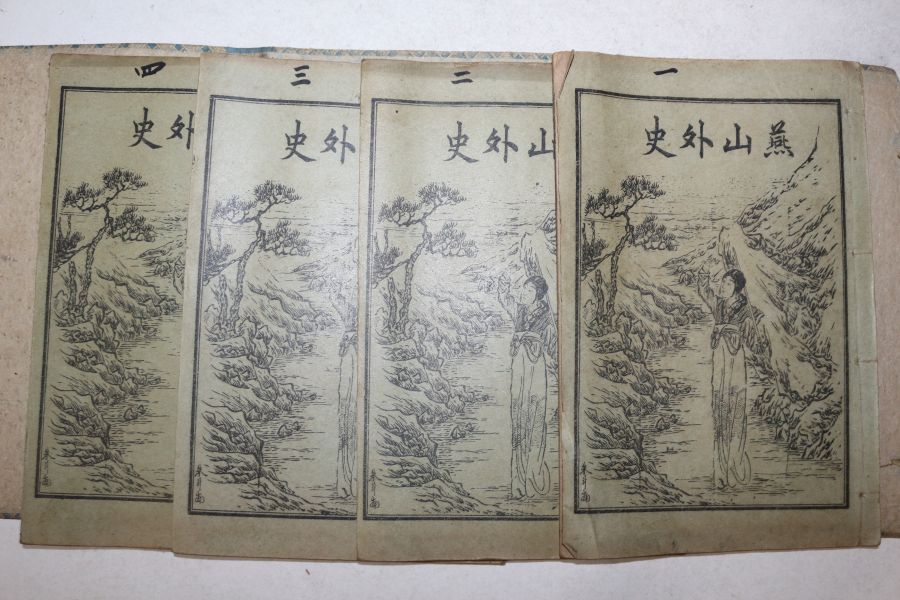 一
燕山外史
二
山外史
三
外史
四
外史